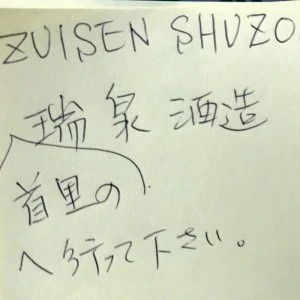 ZUISEN SHUZO
瑞泉酒造
首里の
へ行って下さい。